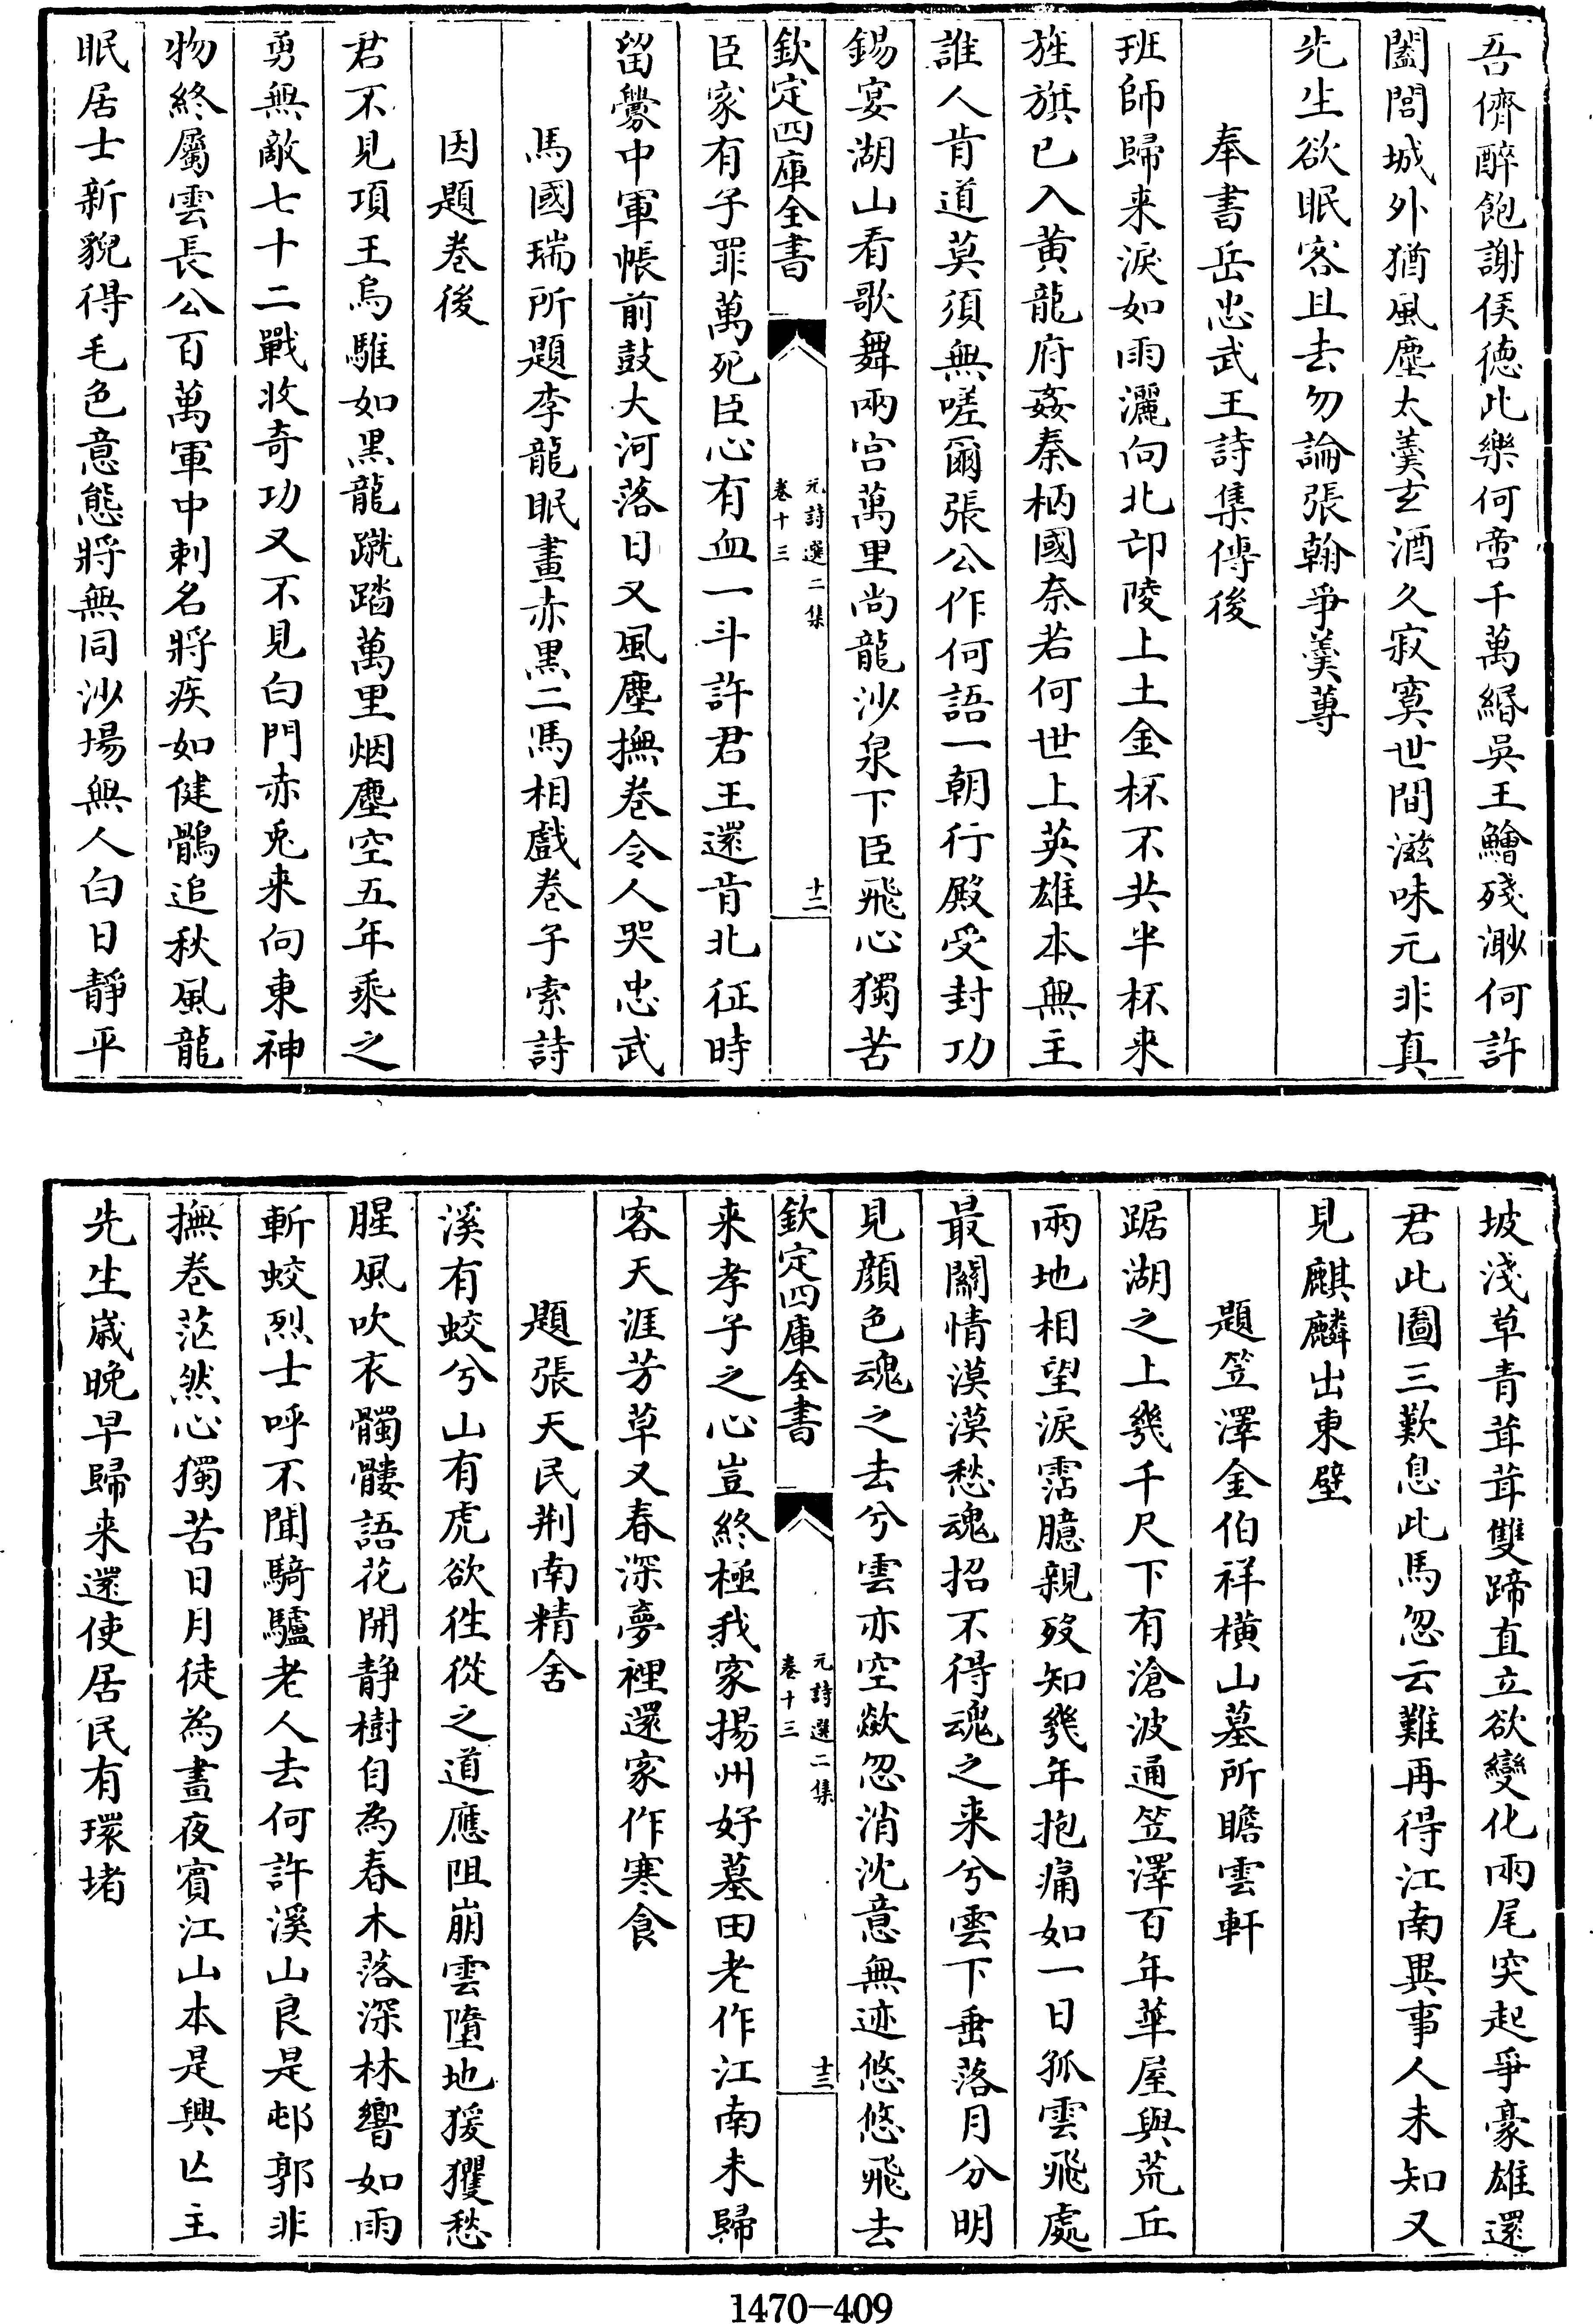 吾儕醉飽謝侯德此樂何啻千萬緡吳王鱠殘渺何許
闔閭城外猶風塵太羹玄酒久寂寞世間滋味元非真
先生欲眠客且去勿論張翰爭羹蓴
奉書岳忠武王詩集傳後
班師歸来淚如雨灑向北邙陵上土金杯不共半杯来
旌旗已入黄龍府姦秦柄國奈若何世上英雄本無主
誰人肯道莫須無嗟爾張公作何語一朝行殿受封功
錫宴湖山看歌舞兩宫萬里尚龍沙泉下臣飛心獨苦
欽定四庫全書
元詩選二集
卷十三
十二
臣家有子罪萬死臣心有血一斗許君王還肯北征時
留釁中軍帳前鼓大河落日又風塵撫卷令人哭忠武
馬國瑞所題李龍眠畫赤黑二馬相戲卷子索詩
因題卷後
君不見項王烏騅如黑龍蹴踏萬里烟塵空五年乘之
勇無敵七十二戰收奇功又不見白門赤兎来向東神
物終屬雲長公百萬軍中刺名將疾如健鶻追秋風龍
眠居士新貎得毛色意態將無同沙場無人白日靜平
坡淺草青茸茸雙蹄直立欲變化兩尾突起爭豪雄還
君此圖三歎息此馬忽云難再得江南異事人未知又
見麒麟出東壁
題笠澤金伯祥横山墓所瞻雲軒
踞湖之上幾千尺下有滄波通笠澤百年華屋與荒丘
兩地相望淚霑臆親歿知幾年抱痛如一日孤雲飛處
最關情漠漠愁魂招不得魂之来兮雲下垂落月分明
見顔色魂之去兮雲亦空歘忽消沈意無迹悠悠飛去
欽定四庫全書
元詩選二集
卷十三
十三
来孝子之心豈終極我家揚州好墓田老作江南未歸
客天涯芳草又春深夢裡還家作寒食
題張天民荆南精舍
溪有蛟兮山有虎欲徃從之道應阻崩雲墮地猨玃愁
腥風吹衣髑髏語花開靜樹自為春木落深林響如雨
斬蛟烈士呼不聞騎驢老人去何許溪山良是邨郭非
撫卷茫然心獨苦日月徒為晝夜賓江山本是興亾主
先生歲晚早歸来還使居民有環堵
1470-409